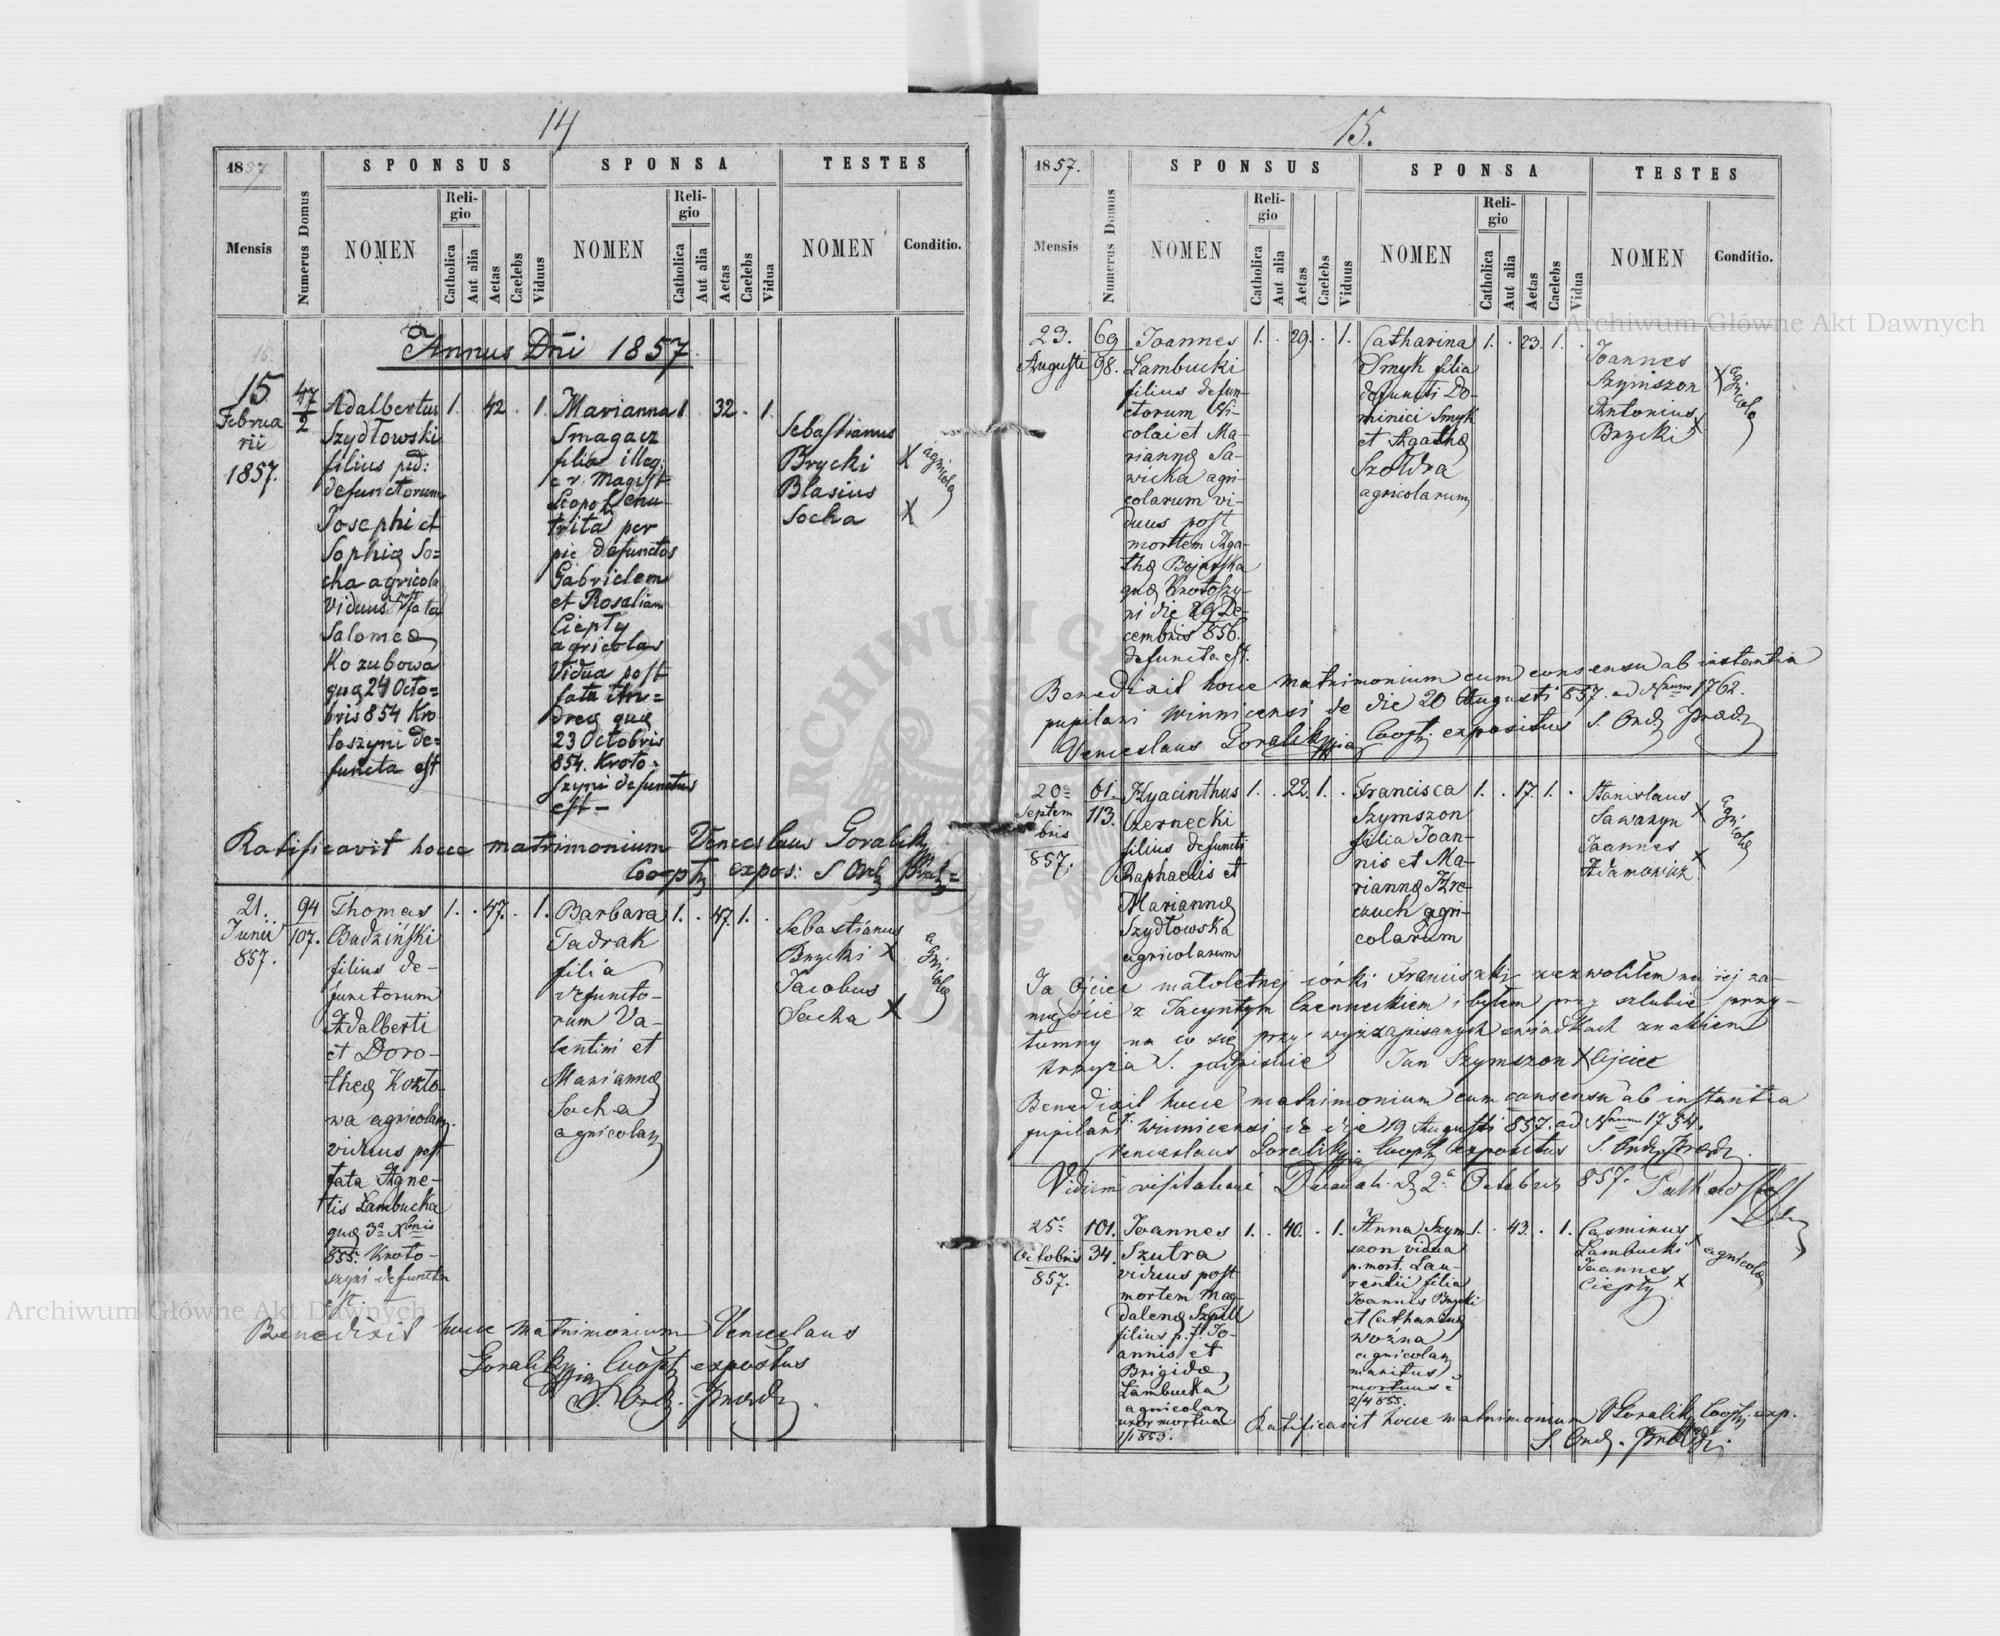 14
1857.
SPONSUS
SPONSA
TESTES
Mensis
Numerus Domus
NOMEN
Religio
Catholica
Aut alia
Aetas
Caelebs
Viduus
NOMEN
Religio
Catholica
Aut alia
Aetas
Caelebs
Vidua
NOMEN
Conditio.
Annus Dni 1857
15
Februa
rii
1857.
47
2
Adalbertus
Szydłowski
filius pd:
defunctorum
Josephi et
Sophiæ So=
cha agricola
viduus post fata
Salomea
Kozubowa
quæ 24 Octo=
bris 854 Kro
toszyni de=
functa est
1. . 42 . 1.
Marianna
Smagacz
filia illeg.
e v. Magist
Leopol enu
trita per
pie defunctos
Gabrielem
et Rosaliam
Ciepły
agricolas
Vidua post
fata An=
dreæ quæ
23 Octobris
854. Kroto=
szyni defunctus
est –
1 . 32 . 1.
Sebastianus
Brycki X
Blasius
Socha X
agricolæ
Ratificavit hocce matrimonium Venceslaus Goralik
Coop expos: S Ord
21.
Junii
857.
94
107.
Thomas
Budziński
filius de-
functorum
Adalberti
et Doro-
theæ Kozło-
wa agricolar.
viduus post
fata Agne-
tis Lambucka
quæ 3a Xbris
855. Kroto-
szyni defuncta
est.
1. . 47. . 1.
Barbara
Jadrak
filia
defuncto-
rum Va-
lentini et
Mariannæ
Socha
agricolar
1. . 47. 1. .
Sebastianus
Brycki X
Jacobus
Socha X
agricolæ
Benedixit hocce matrimonium Venceslaus
Goralik Coop expositus
S. Ord.
15.
1857.
SPONSUS
SPONSA
TESTES
Mensis
Numerus Domus
NOMEN
Religio
Catholica
Aut alia
Aetas
Caelebs
Viduus
NOMEN
Religio
Catholica
Aut alia
Aetas
Caelebs
Vidua
NOMEN
Conditio.
23.
Augusti
69
98.
Joannes
Lambucki
filius defun-
ctorum Ni-
colai et Ma-
riannæ Sa-
wicka agri-
colarum vi-
duus post
mortem Aga-
thæ Bojarska
quæ Krotoszy-
ni die 29 De-
cembris 856.
defuncta est.
1. . 29. . 1.
Catharina
Smyk filia
defuncti Do-
minici Smyk
et Agathæ
Szołdra
agricolarum
1. . 23. 1. .
Joannes
Szymszon X
Antonius
Brycki X
agricolæ
Benedixit hocce matrimonium cum consensu ab instantia
pupilari Winnicensi de die 20 Augusti 857. ad Nrum 1762.
Venceslaus Goralik Coop. expositus S. Ord.
20a
Septem
bris
857.
61.
113.
Hyacinthus
Czernecki
filius defuncti
Raphaelis et
Mariannæ
Szydłowska
agricolarum
1. . 22. 1. .
Francisca
Szymszon
filia Joan-
nis et Ma-
riannæ Hre-
czuch agri-
colarum
1. . 17. 1. .
Stanislaus
Sawaryn X
Joannes
Adamowicz X
agricolæ
Ja Ojciec małoletnej córki Franciszki zezwoliłem na jej za-
mąście z Jacyntym Czerneckiem i byłem przy szlubie przy-
tomny na co się przy wyżzapisanych świadkach znakiem
krzyża S. podpisuie Jan Szymszon X Ojciec
Benedixit hocce matrimonium cum consensu ab instantia
pupilari Winnicensi de die 19 Augusti 857. ad Nrum 1754.
Venceslaus Goralik Coop expositus S. Ord.
Vidi in visitatione Decanali d 2a Octobris 857.
25a
Octobris
857.
101.
34.
Joannes
Szutra
viduus post
mortem Mag-
dalenæ Szpill
filius p. f. Jo-
annis et
Brigidæ
Lambucka
agricolar
uxor mortua
1/1 853.
1. . 40. . 1.
Anna Szym
szon vidua
p. mort. Lau-
rentii filia
Joannis Brycki
et Catharinæ
Woźna
agricolar
maritus
mortuus
2/4 855.
1. . 43. . 1.
Casimirus
Lambucki X
Joannes
Ciepły X
agricolæ
Ratificavit hocce matrimonium VGoralik Coop. exp.
S. Ord.
Archiwum Główne Akt Dawnych
Archiwum Główne Akt Dawnych